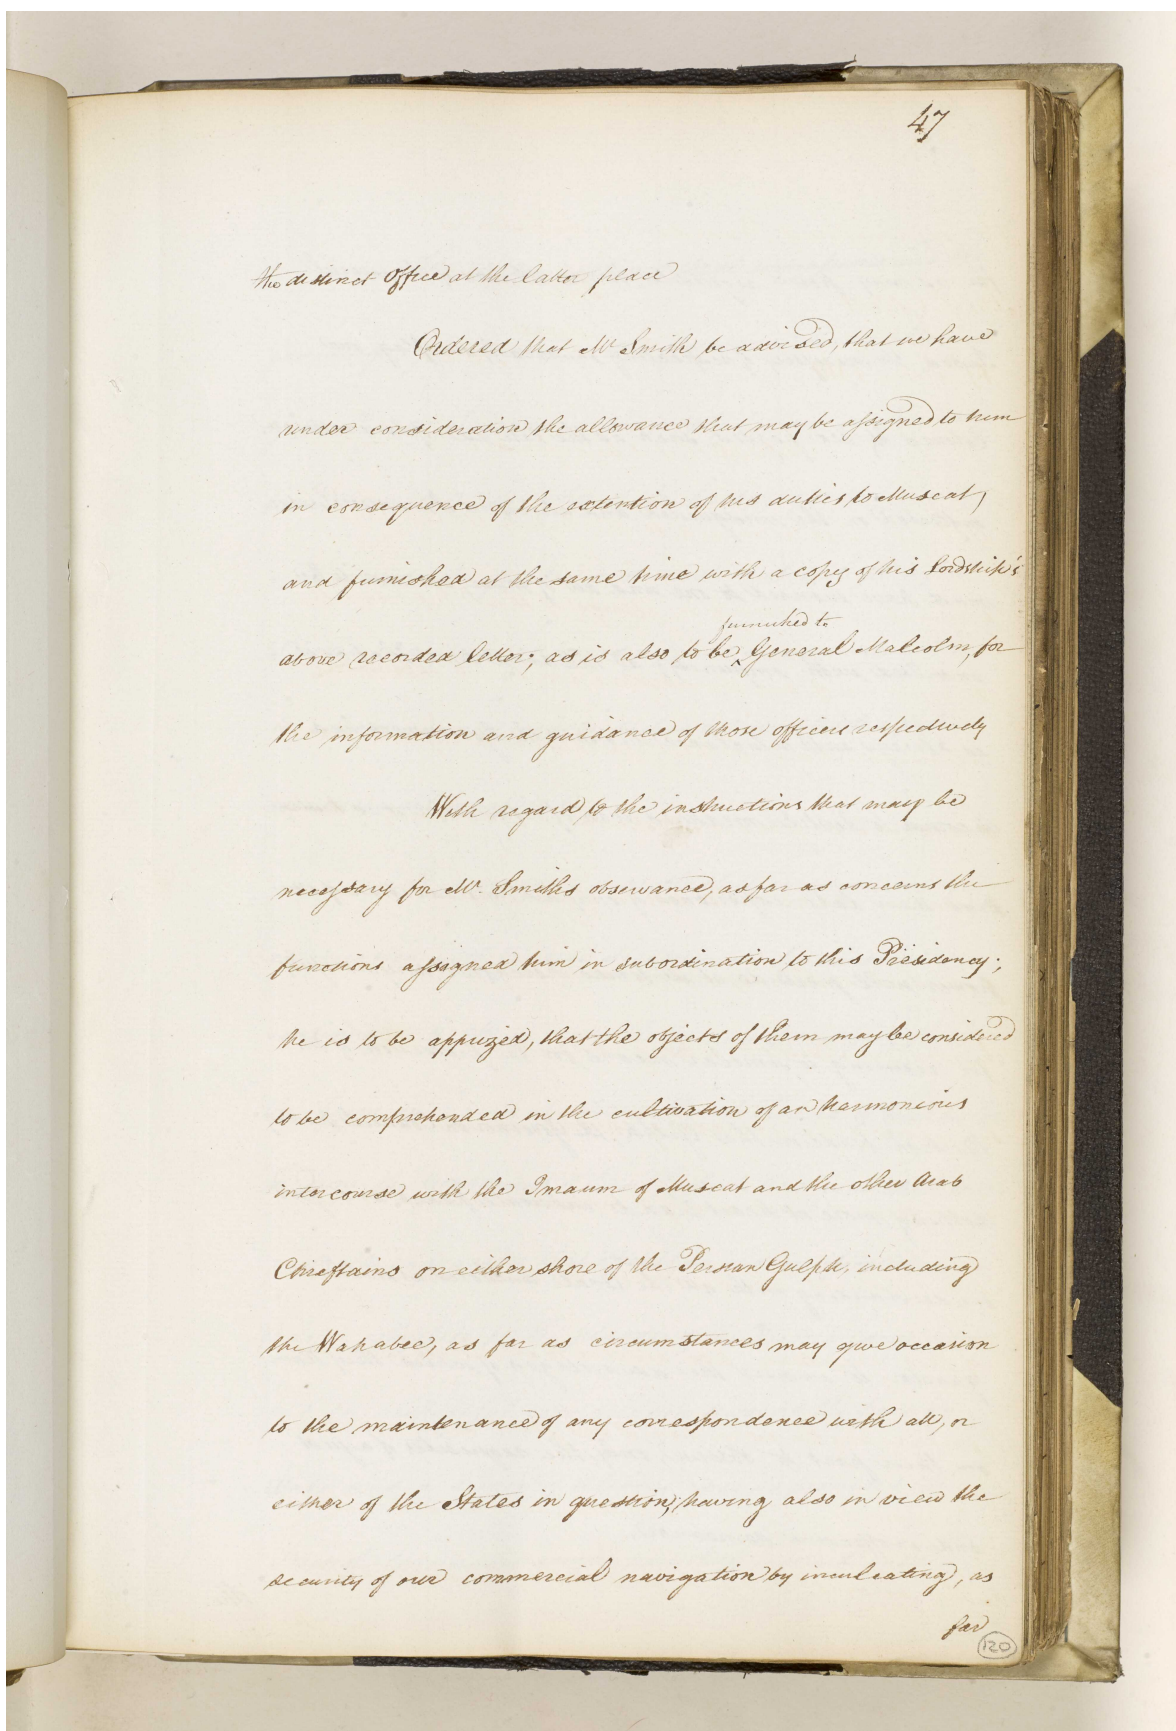 47
the distinct Office at the latter place
Ordered that Mr Smith be advised, that we have
under consideration the allowance that may be assigned to him
in consequence of the extention of his duties to Muscat,
and furnished at the same time with a copy of his Lordship's
furnished to
above recorded letter; as is also to be ^ General Malcolm, for
the information and guidance of those officers respectively
With regard to the instructions that may be
necessary for Mr. Smiths observance, as far as concerns the
functions assigned him in subordination to this Presidency;
he is to be apprized, that the objects of them may be considered
to be comprehended in the cultivation of an harmonious
intercourse with the Imaum of Muscat and the other Arab
Chieftains on either shore of the Persian Gulph, including
the Wahabee, as far as circumstances may give occasion
to the maintenance of any correspondence with all, or
either of the States in question; having also in view the
security of our commercial navigation by inculcating, as
far
120